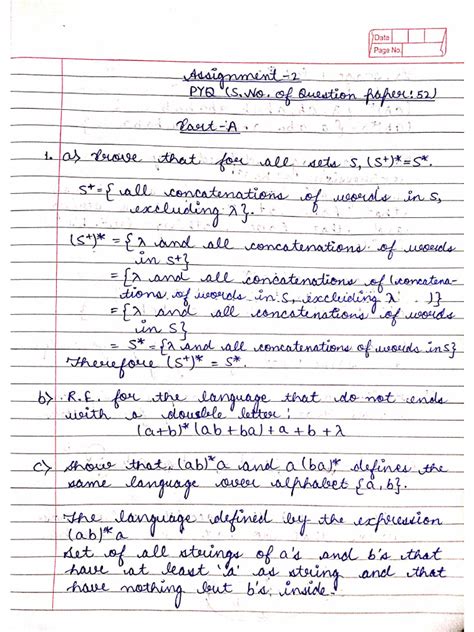 Date
Page No.
Assignment-2
PYQ (S.No. of Question paper: 52)
Part-A.
1. a) Prove that for all sets S, (S⁺)* = S*.
S⁺ = { all concatenations of words in S,
excluding λ }.
(S⁺)* = {λ and all concatenations of words
in S⁺}
= {λ and all concatenations of (concatena-
tions of words in S, excluding λ . )}
= {λ and all concatenations of words
in S}
= S* = {λ and all concatenations of words in S}
Therefore (S⁺)* = S*.
b) R.E. for the language that do not ends
with a double letter:
(a+b)* (ab+ba) + a + b + λ
c) Show that (ab)*a and a(ba)* defines the
same language over alphabet {a, b}.
The language defined by the expression
(ab)*a
set of all strings of a's and b's that
have at least 'a' as string and that
have nothing but b's inside.